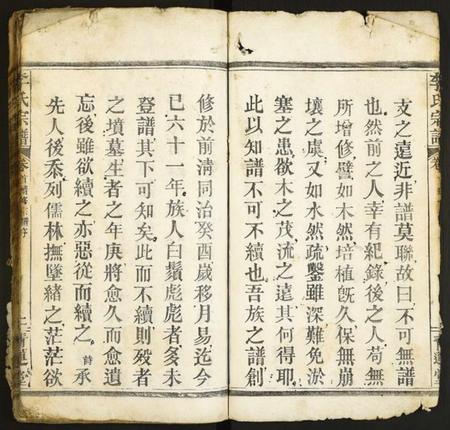 李氏宗譜 卷
支之遠近非譜莫聯故曰不可無譜
也然前之人幸有紀錄後之人苟無
所增修譬如木然培植旣久保無崩
壞之虞又如水然疏鑿雖深難免淤
塞之患欲木之茂流之遠其何得耶
此以知譜不可不續也吾族之譜創
修於前淸同治癸酉歲移月易迄今
已六十一年族人白鬚彪彪者多未
登譜其下可知矣此而不續則殁者
之墳墓生者之年庚將愈久而愈遺
忘後雖欲續之亦惡從而續之詩承
先人後忝列儒林撫墜緒之茫茫欲
李氏宗譜 卷 青蓮堂